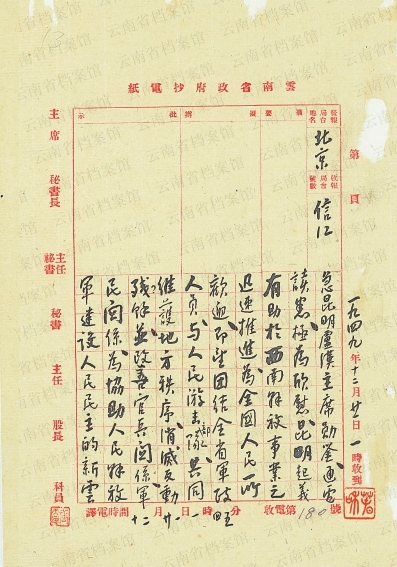 雲南省政府抄電紙
發報局台地名
北京
收報局台號數
信江
摘要
擬辦
批示
第 頁
一九四九年十二月廿日一時收到
急昆明盧漢主席勛鑒通電
讀悉極為欣慰昆明起義
有助於西南解放事業之
迅速推進為全國人民所
歡迎即望團結全省軍政
人員與人民游击隊共同
維護地方秩序消滅反動
殘餘並改善官兵關係軍
民關係為協助人民解放
軍建設人民民主的新雲
收電第180號
譯電時間 月 日 時 分
主席
秘書長
主任秘書
秘書
主任
股長
科員
云南省档案馆